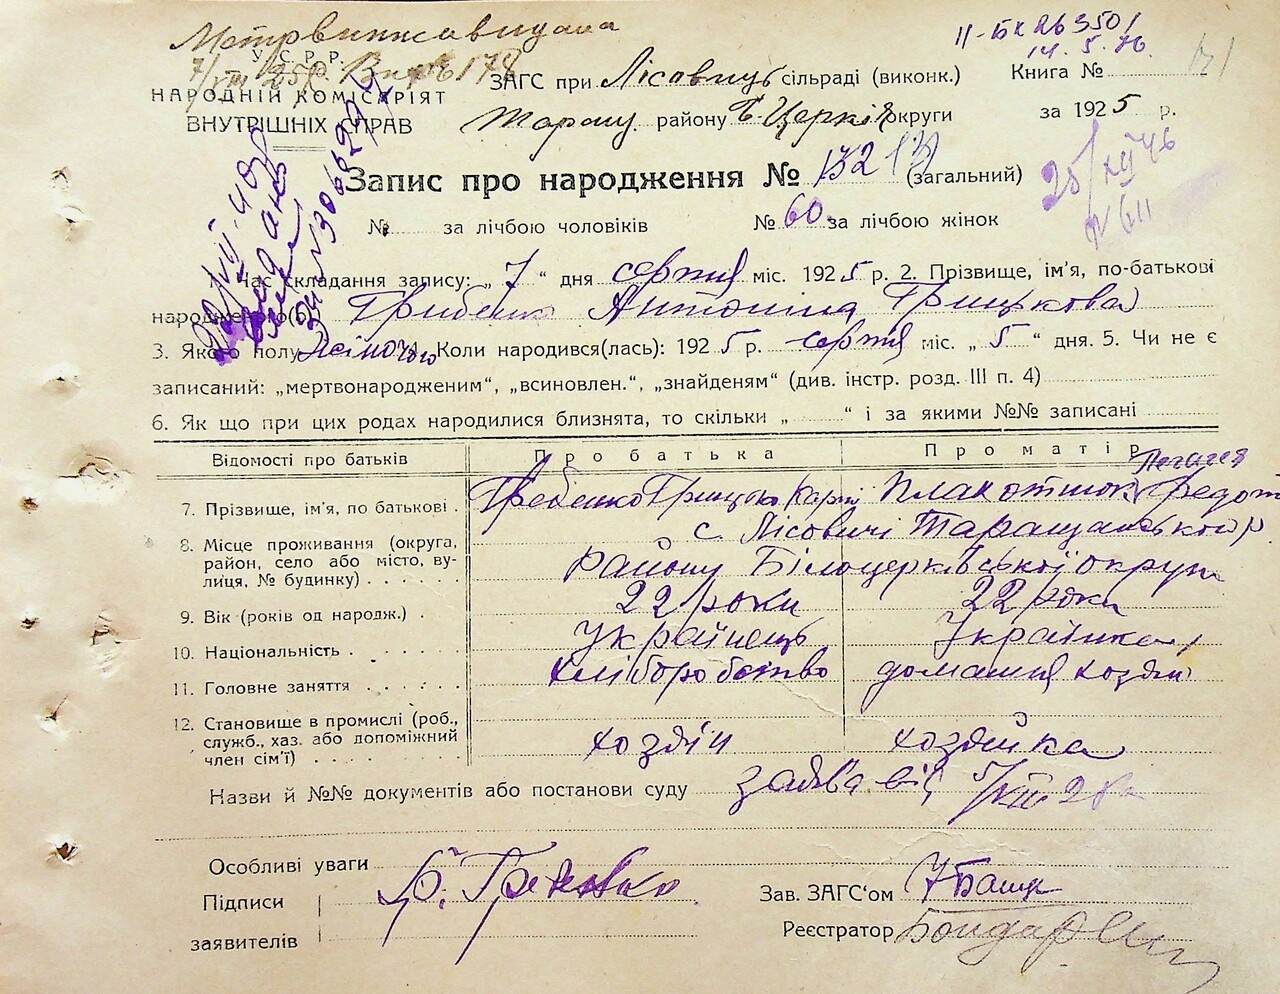 Метрвипис видана
У.С.Р.Р.
7/VIII 25 р. Вип № 178
НАРОДНІЙ КОМІСАРІЯТ
ВНУТРІШНІХ СПРАВ
II-БК 263501
14.5.76.
ЗАГС при Лісовиць сільраді (виконк.) Книга №
Таращ. району Б Церків округи за 1925 р.
Запис про народження № 132 (загальний)
25/XII 46
N 611
№ за лічбою чоловіків № 60 за лічбою жінок
Час складання запису: „ 7 “ дня серпня міс. 1925 р. 2. Прізвище, ім'я, по-батькові
народженого(ї) Грибенко Антоніна Грицькова
3. Якого полу Жіночого 4. Коли народився(лась): 1925 р. серпня міс. „ 5 “ дня. 5. Чи не є
записаний: „мертвонародженим“, „всиновлен.“, „знайденям“ (див. інстр. розд. III п. 4)
6. Як що при цих родах народилися близнята, то скільки „ “ і за якими №№ записані
Відомості про батьків Про батька Про матір
7. Прізвище, ім'я, по батькові Гребенко Грицько Плахотнюк Федот
8. Місце проживання (округа, с. Лісовичі Таращанського р
район, село або місто, ву- Району Білоцерківської округи
лиця, № будинку)
9. Вік (років од народж.) 22 роки 22 роки
10. Національність Українець Українка
11. Головне заняття хліборобство домашня хозяй
12. Становище в промислі (роб.,
служб., хаз. або допоміжний хозяін хозяйка
член сім'ї)
Назви й №№ документів або постанови суду заява від 5/VIII 25
Особливі уваги
Підписи Г. Гребенко Зав. ЗАГС'ом
заявителів Реєстратор Бондар